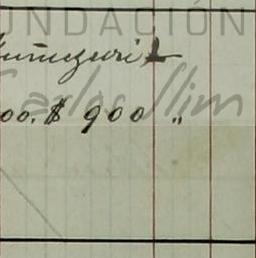 FUNDACIÓN
Carlos Slim
00. $ 900 "